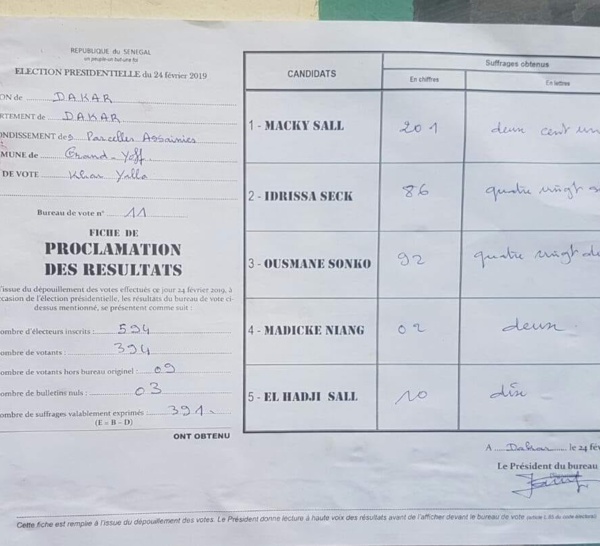 REPUBLIQUE du SENEGAL
un peuple-un but-une foi
ELECTION PRESIDENTIELLE du 24 février 2019
ON de DAKAR
RTEMENT de DAKAR
ONDISSEMENT des Parcelles Assainies
MUNE de Grand-Yoff
DE VOTE Khar Yalla
Bureau de vote n° 11
FICHE DE
PROCLAMATION
DES RESULTATS
l'issue du dépouillement des votes effectués ce jour 24 février 2019, à
ccasion de l'élection présidentielle, les résultats du bureau de vote ci-
dessus mentionné, se présentent comme suit :
ombre d'électeurs inscrits : 594
ombre de votants : 394
ombre de votants hors bureau originel : 09
ombre de bulletins nuls : 03
ombre de suffrages valablement exprimés : 391
(E = B - D)
ONT OBTENU
CANDIDATS
Suffrages obtenus
En chiffres
En lettres
1 - MACKY SALL 201 deux cent un
2 - IDRISSA SECK 86 quatre vingt
3 - OUSMANE SONKO 92 quatre vingt
4 - MADICKE NIANG 02 deux
5 - EL HADJI SALL 10 dix
A Dakar le 24 fév
Le Président du bureau
Cette fiche est remplie à l'issue du dépouillement des votes. Le Président donne lecture à haute voix des résultats avant de l'afficher devant le bureau de vote